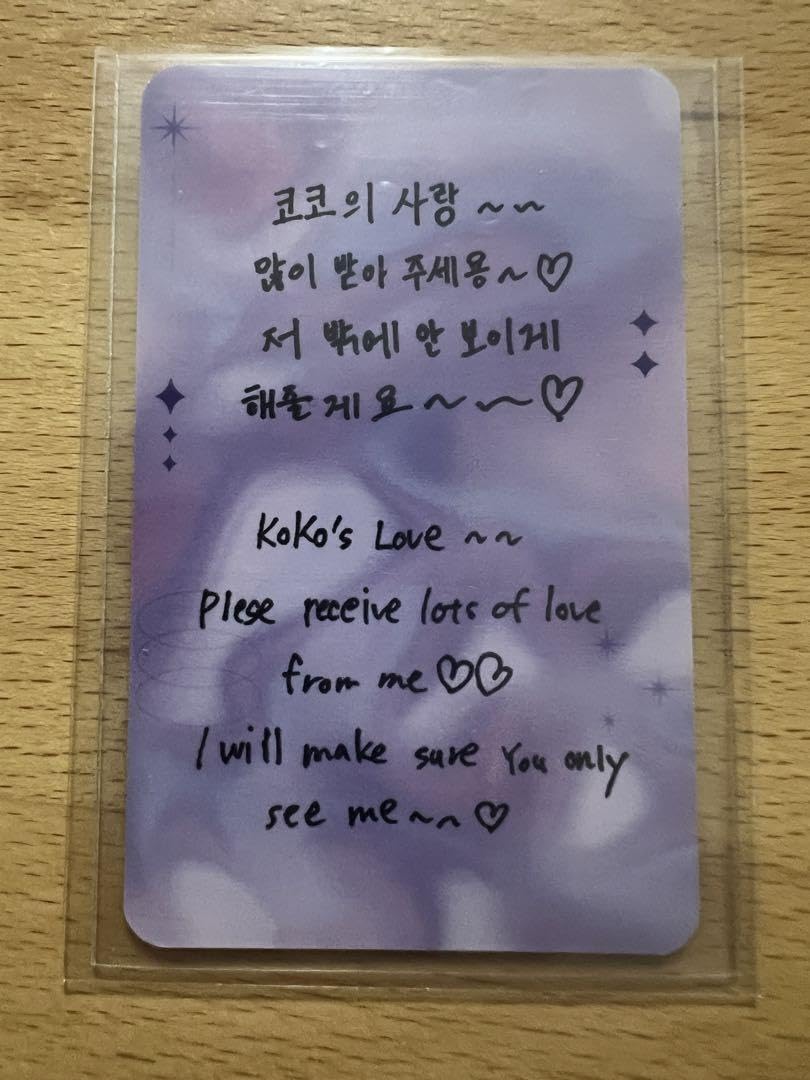 코코의 사랑 ~~
많이 받아 주세용~♡
저 밖에 안 보이게
해줄게요~~♡
KoKo's Love ~~
Plese receive lots of love
from me♡♡
I will make sure You only
see me~~♡